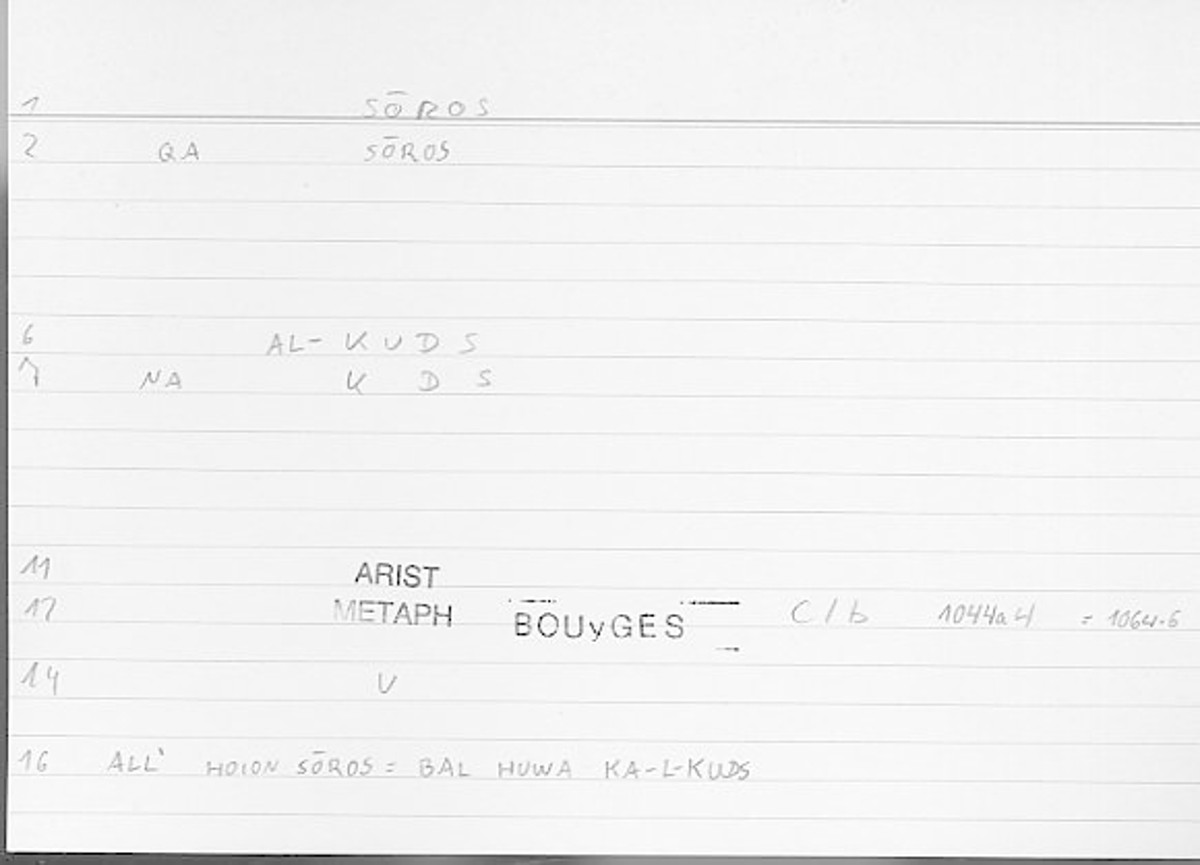 1 SŌROS
2 QA SŌROS
6 AL-KUDS
7 NA K D S
11 ARIST
12 METAPH BOUyGES C/b 1044a4 = 1064.6
14 V
16 ALL' HOION SŌROS = BAL HUWA KA-L-KUDS